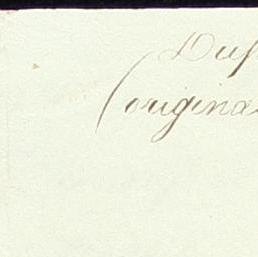 Dup
(origina